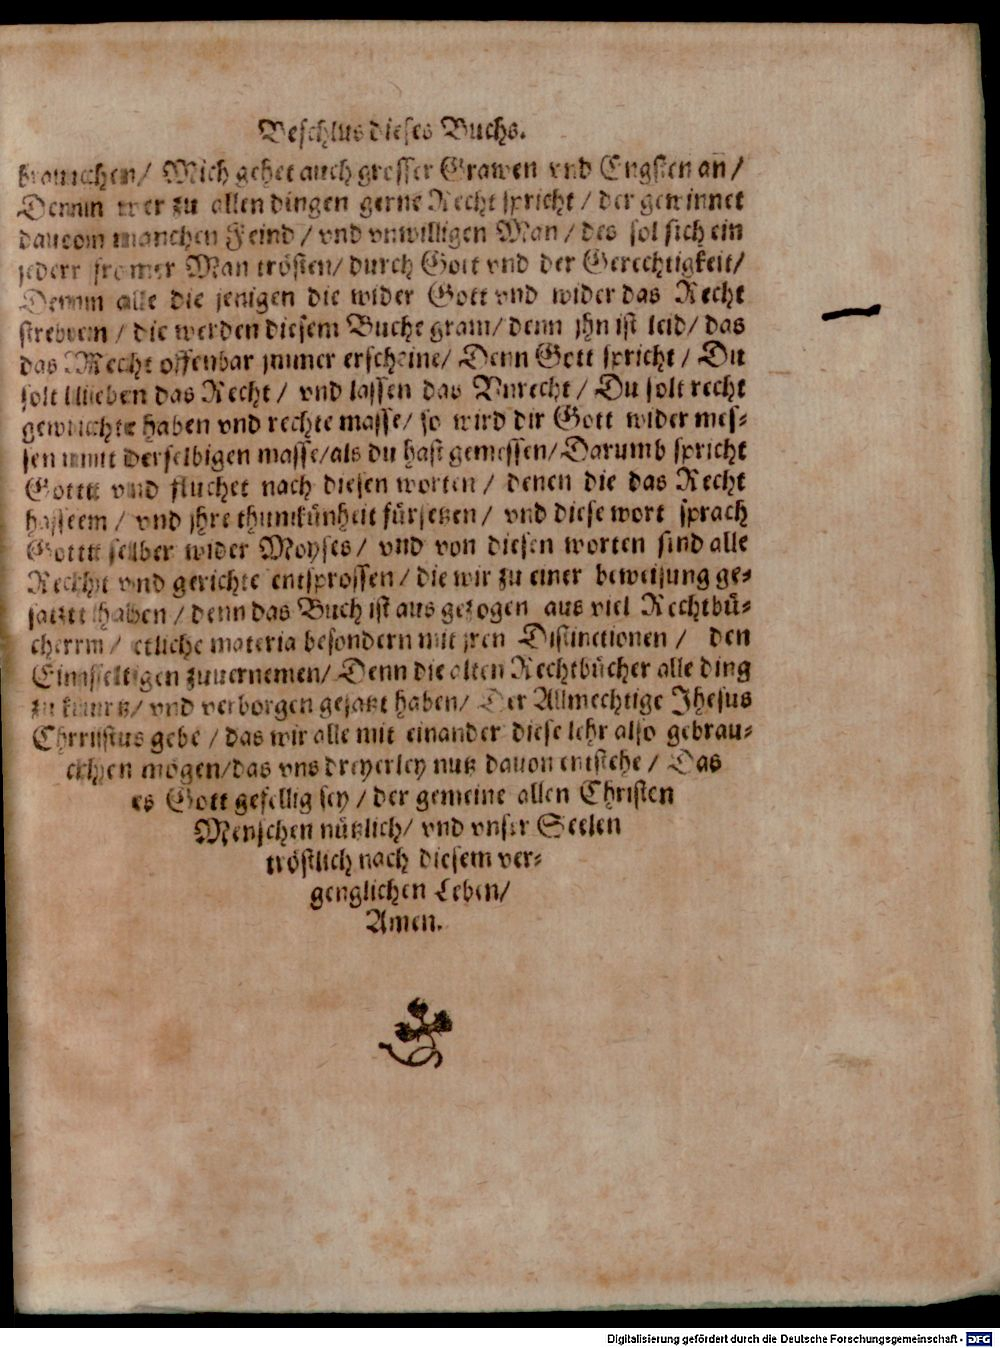 Beschlus dieses Buchs.
brauchen/ Mich gehet auch grosser Grawen vnd Engsten an/
Denn wer zu allen dingen gerne Recht spricht/ der gewinnet
dauon manchen Feind/ vnd vnwilligen Man/ des sol sich ein
jeder fromer Man trösten/ durch Gott vnd der Gerechtigkeit/
Denn alle die jenigen die wider Gott vnd wider das Recht
streben/ die werden diesem Buche gram/ denn jhn ist leid/ das
das Recht offenbar jmmer erscheine/ Denn Gott spricht/ Du
solt lieben das Recht/ vnd lassen das Vnrecht/ Du solt recht
gewichte haben vnd rechte masse/ so wird dir Gott wider mes-
sen mit derselbigen masse/ als du hast gemessen/ Darumb spricht
Gott vnd fluchet nach diesen worten/ denen die das Recht
hassen/ vnd jhre thumkünheit fürsetzen/ vnd diese wort sprach
Gott selber wider Moyses/ vnd von diesen worten sind alle
Recht vnd gerichte entsprossen/ die wir zu einer beweisung ge-
satzt haben/ denn das Buch ist aus gezogen aus viel Rechtbü-
chern/ etliche materia besondern mit jren Distinctionen/ den
Einfeltigen zuuernemen/ Denn die alten Rechtbücher alle ding
zu kurtz/ vnd verborgen gesatzt haben/ Der Allmechtige Jhesus
Christus gebe/ das wir alle mit einander diese lehr also gebrau-
chen mögen/ das vns dreyerley nutz dauon entstehe/ Das
es Gott gefellig sey/ der gemeine allen Christen
Menschen nützlich/ vnd vnser Seelen
tröstlich nach diesem ver-
genglichen Leben/
Amen.
Digitalisierung gefördert durch die Deutsche Forschungsgemeinschaft - DFG